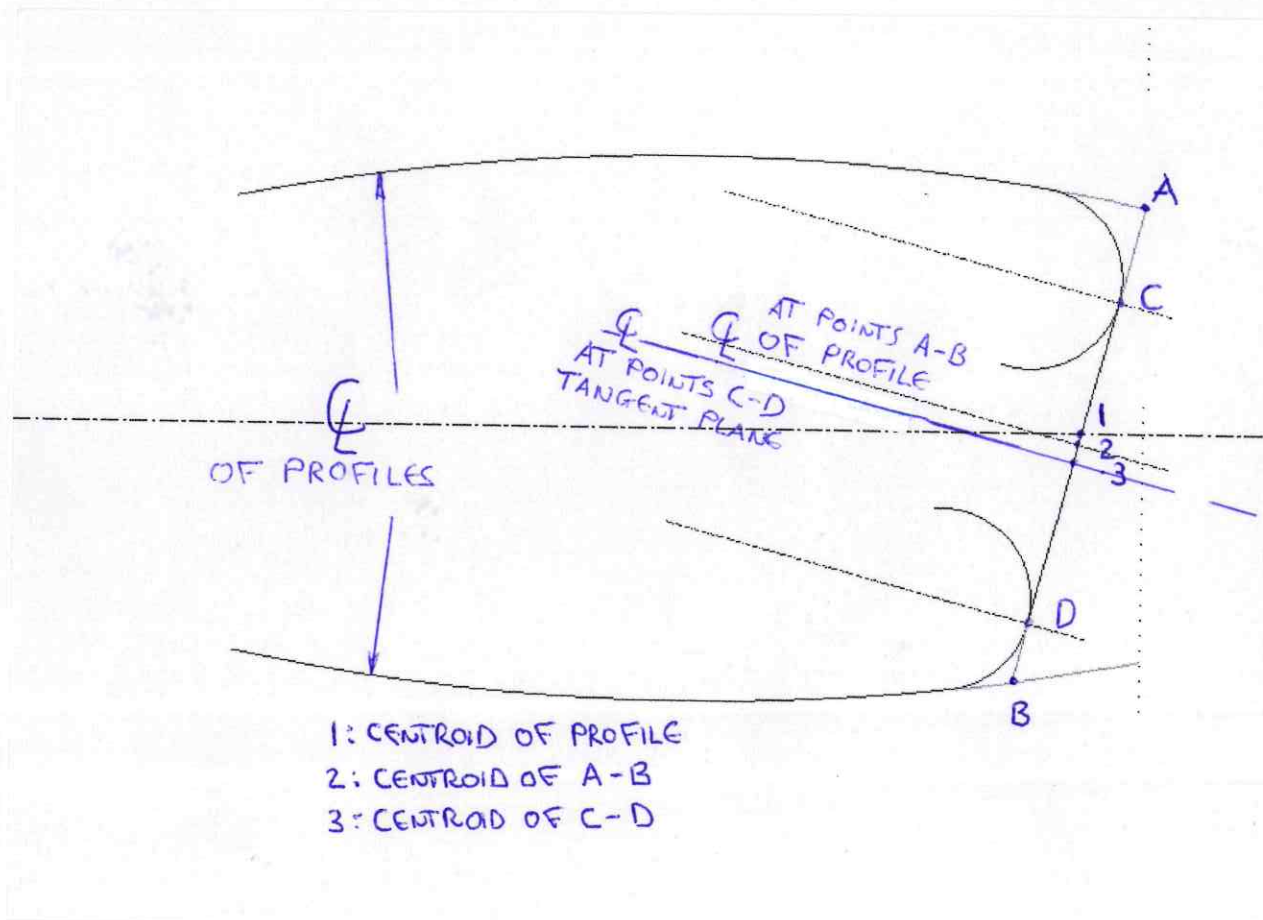 A
C
AT POINTS A-B
℄ OF PROFILE
℄
AT POINTS C-D
TANGENT PLANE
1
2
3
℄
OF PROFILES
D
B
1: CENTROID OF PROFILE
2: CENTROID OF A-B
3: CENTROD OF C-D